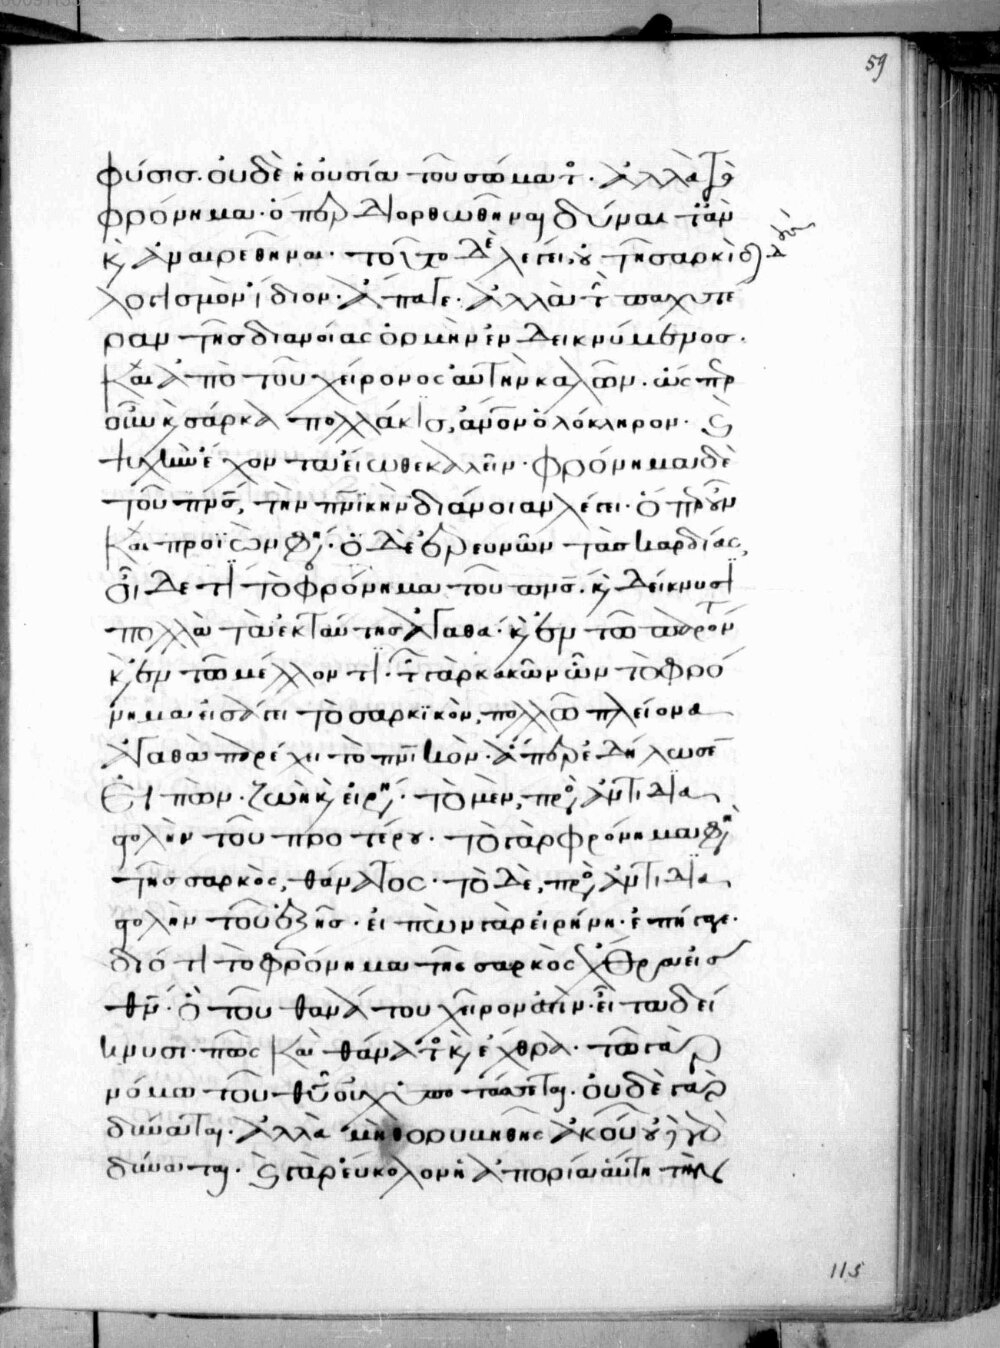 φύσισ. οὐδὲ ἡ οὐσία τοῦ σώματ(ος). ἀλλὰ τὸ
φρόνημα. ὅπερ διορθωθῆναι δύναιτ ἂν
κ(αὶ) ἀναιρεθῆναι. τοῦτο δὲ λέγει, οὐ τῆ σαρκὶ δι
λογισμὸν ἴδιον. ἄπαγε. ἀλλὰ τ(ὴν) παχυτέ
ραν τῆσ διανοίας ὁρμὴν ἐνδεικνύμενοσ.
καὶ ἀπὸ τοῦ χείρονος αὐτὴν καλῶν. ὥσπερ
οὖν κ(αὶ) σάρκα πολλάκισ, ἄνον ὁλόκληρον. κ(αὶ)
ψυχὴν ἔχοντα εἴωθε καλεῖν. φρόνημα δὲ
τοῦ πνς, τὴν πνικὴν διάνοιαν λέγει.
καὶ προϊών φη(σι). ὁ δὲ ἐρευνῶν τὰσ καρδίας,
οἶδε τί τὸ φρόνημα τοῦ πνς. κ(αὶ) δείκνυσι
πολλὰ τὰ ἐκ ταύτησ ἀγαθά. κ(αὶ) ἐν τῶ παρόν
κ(αὶ) ἐν τῶ μέλλοντι. τ(ῶν) γὰρ κακῶν ὧν τὸ φρό
νημα εἰσάγει τὸ σαρκικὸν, πολλῶ πλείονα
ἀγαθὰ παρέχει τὸ πνικόν. ἅπερ ἐδήλωσεν
εἰπών. ζωὴ κ(αὶ) εἰρή(νη). τὸ μὲν, πρὸ(ς) ἀντιδια
στολὴν τοῦ προτέρου. τὸ γὰρ φρόνημα φη(σι)
τῆσ σαρκὸς, θάνατος. τὸ δὲ, πρὸ(ς) ἀντιδια
στολὴν τοῦ ἑξῆσ. εἰπὼν γὰρ εἰρήνη. ἐπήγαγε.
διότι τὸ φρόνημα τῆς σαρκὸς ἔχθρα εἰσ
θν. ὃ τοῦ θανάτου χεῖρόν ἐστιν. εἶτα δεί
κνυσι. πῶς καὶ θάνατ(ος) κ(αὶ) ἔχθρα. τῶ γὰρ
νόμω τοῦ θυ οὐχ ὑποτάσσεται. οὐδὲ γὰρ
δύναται. ἀλλὰ μὴ θορυβηθῆς ἀκούων οὐδὲ γὰρ
δύναται. κ(αὶ) γὰρ εὔκολον ἡ ἀπορία αὕτη τὴν